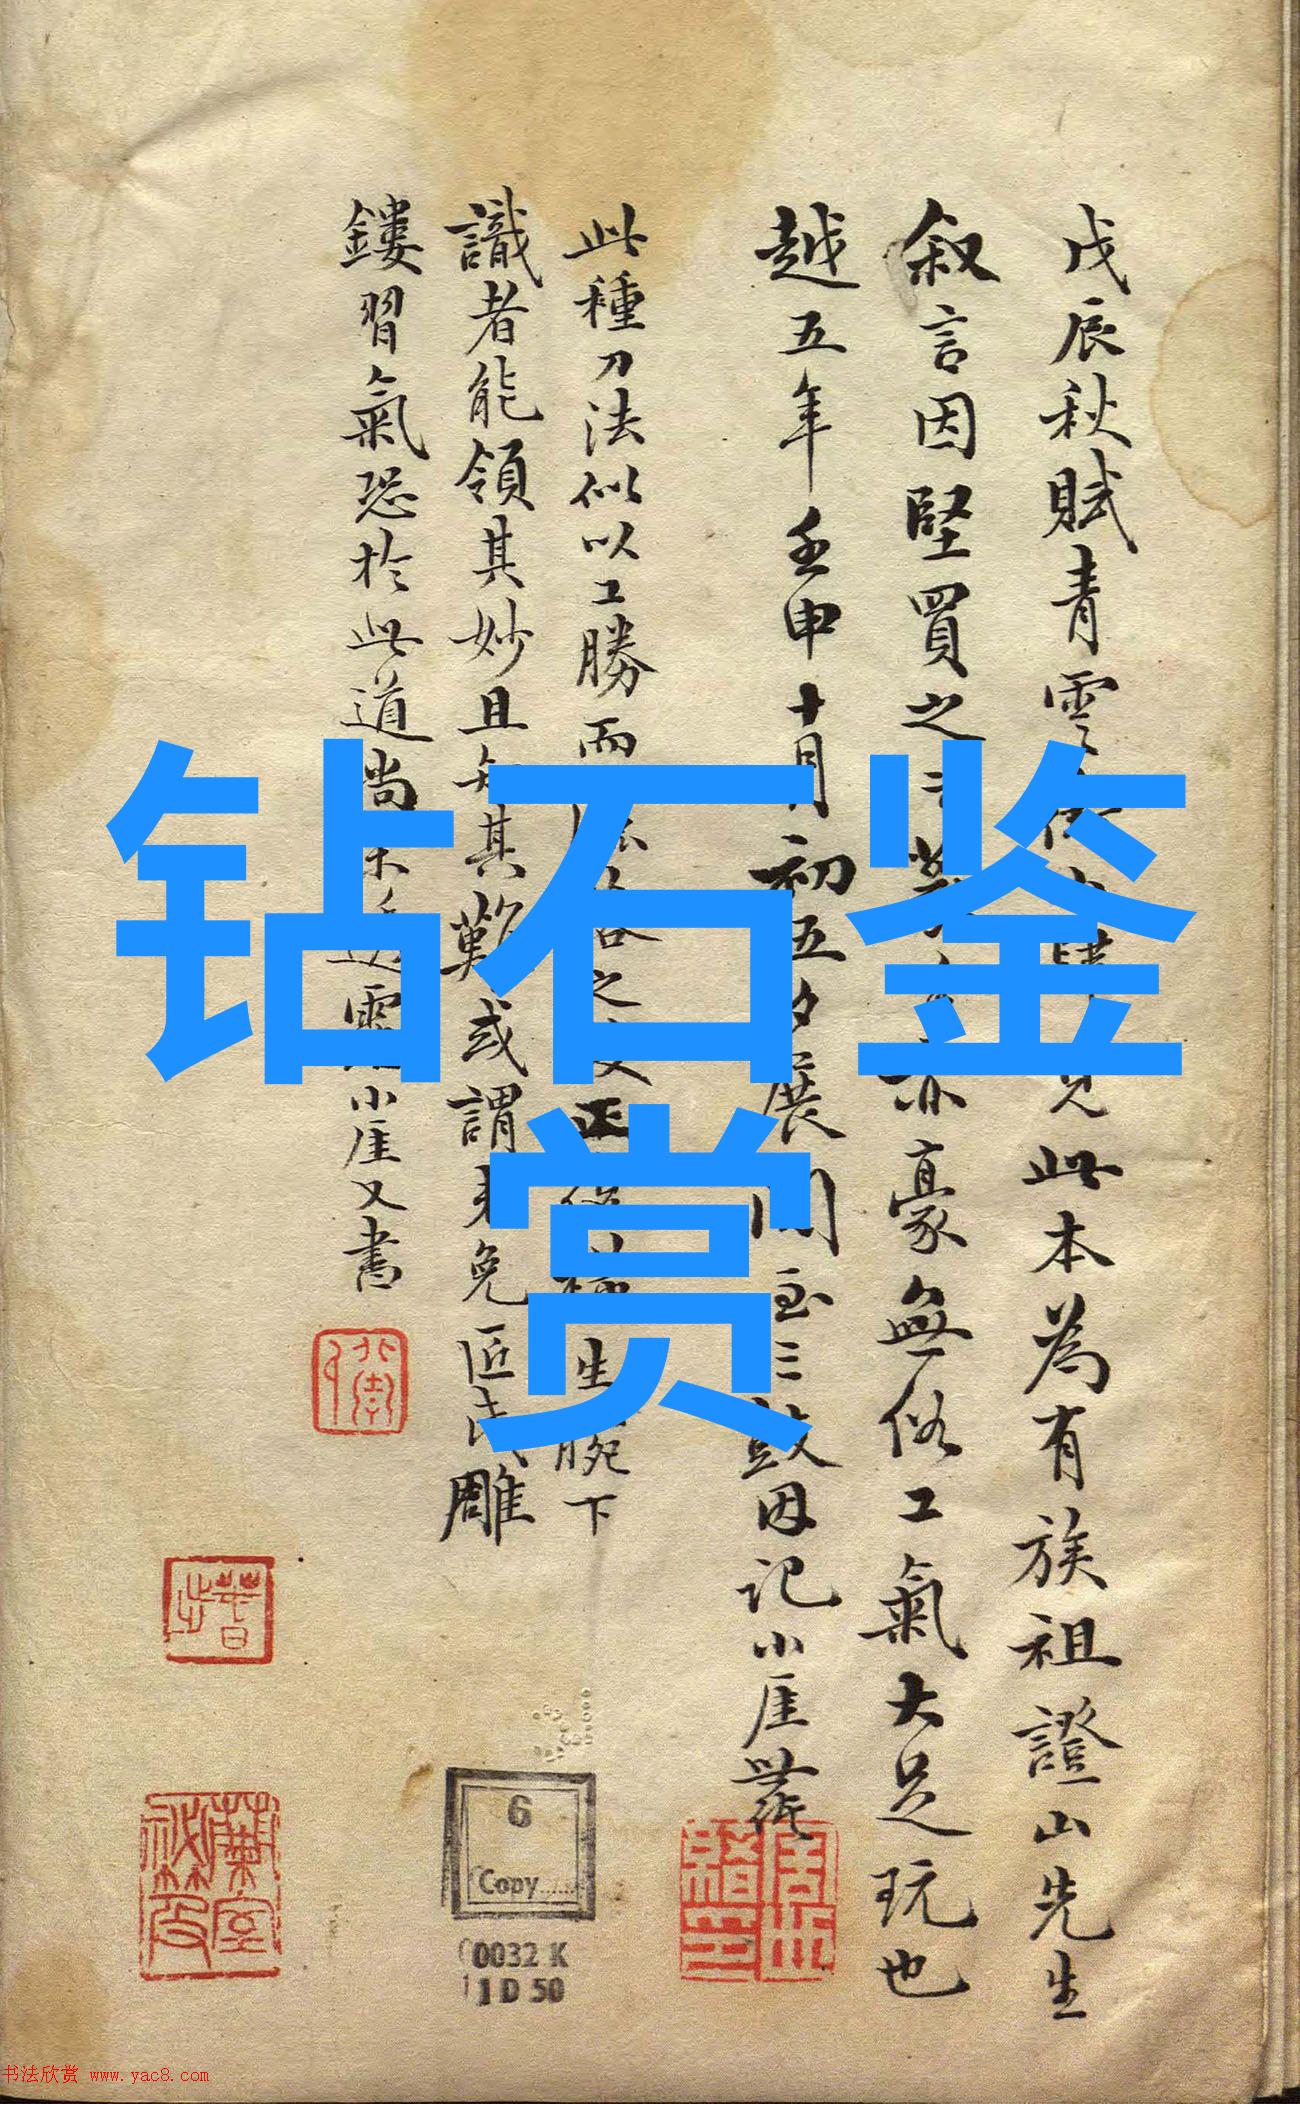 戊辰秋賦青雲此本為有族祖證山先生
叙言因堅買之亦豪無俗工氣大足玩也
越五年壬申十月初五夕展閱至三鼓因記小厓
此種刀法似以工勝而之正生腕下
識者能領其妙且知其難或謂未免匠氏雕
鏤習氣恐於此道尚小厓又書
钻石鉴
赏
6
Copy......
0032 K
1 D 50
书法欣赏 www.yac8.com